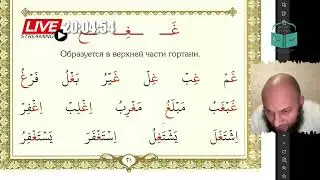 LIVE 20:04:54
STREAMING
غَـ ـغِـ ـغ
Образуется в верхней части гортани.
غَمْ غِبْ غِلْ غَيْرُ بَغْلُ فَرْغُ
غَبْغَبُ مَبْلَغُ مَغْرِبُ اِغْلِبْ اِغْفِرْ
اِشْتَغَلَ يَشْتَغِلُ اِسْتَغْفَرَ يَسْتَغْفِرُ
٢١